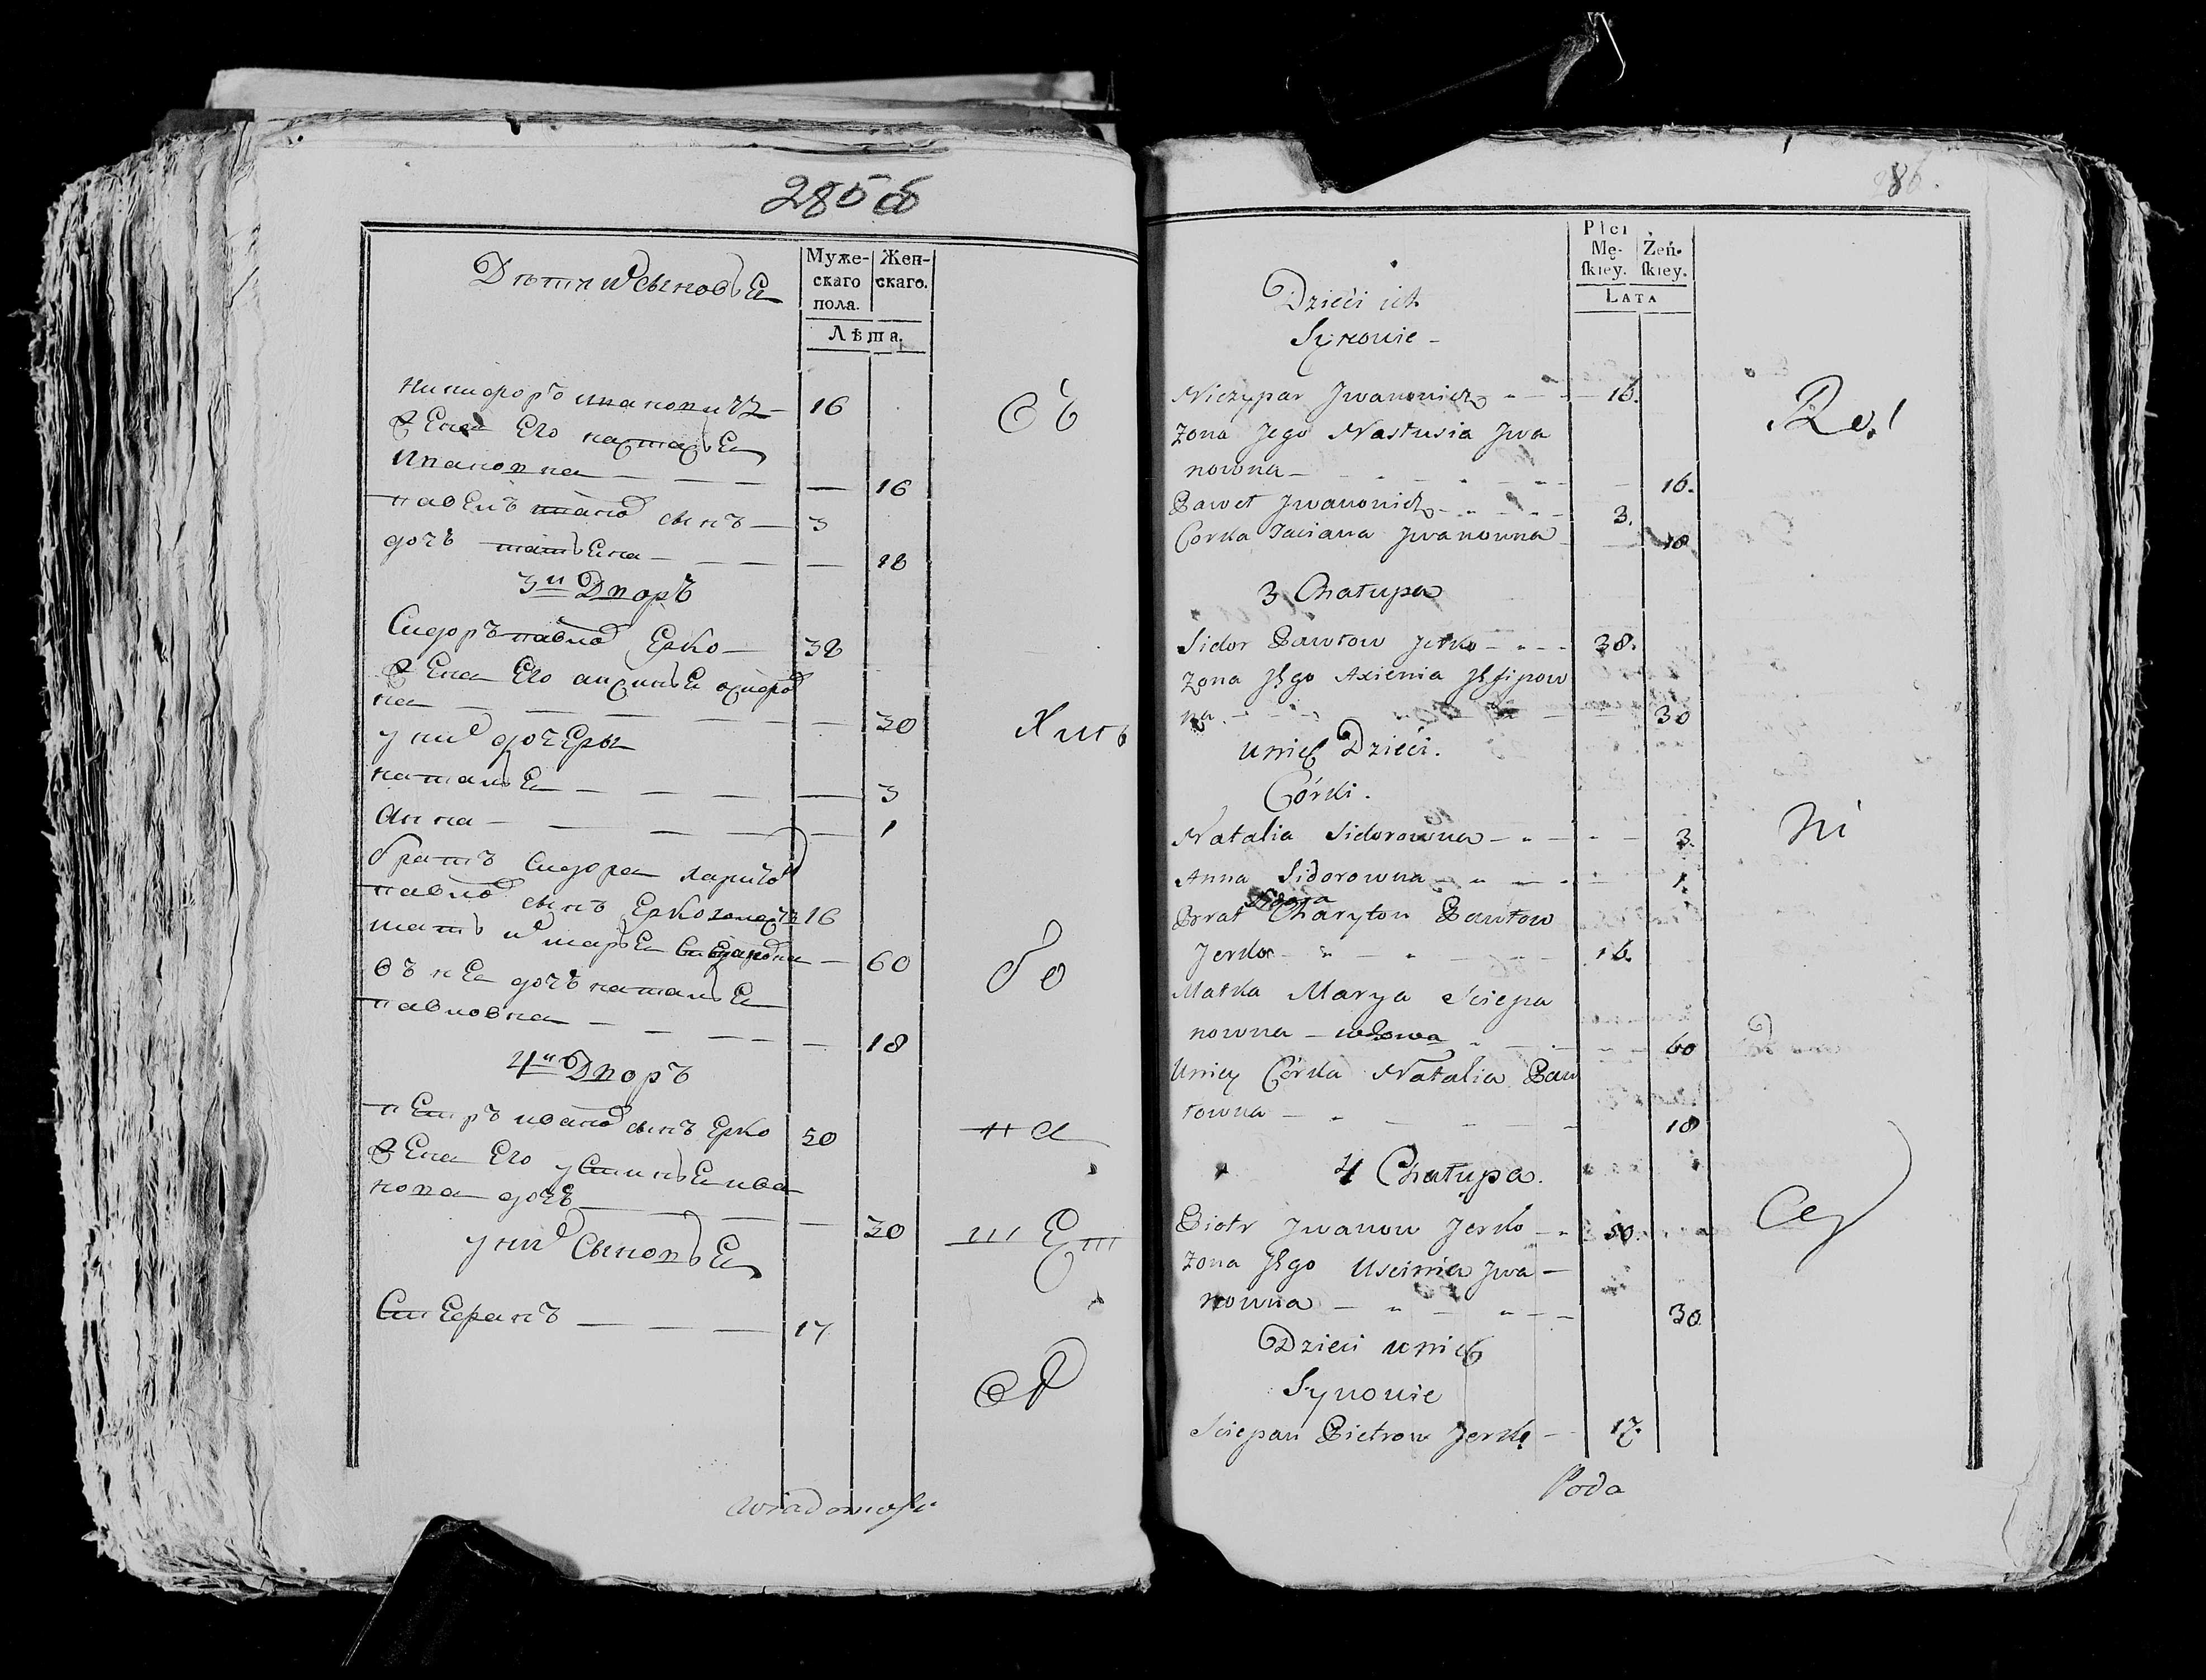 285 об
Муже-
скаго
пола.
Жен-
скаго.
Лѣта.
Дети и сыновье
никифоръ иванович 16
жена Его настасье
Ивановна — — — 16
павелъ иванов сынъ — 3
дочъ татьена — — — 18
3й Дворъ
Сидоръ павлов Ерко — 38
жена Его аксинье
на — — — 30
у них дочеры
наталье — — — 3
Анна — — — 1
братъ Сидора харитон
павлов сынъ Ерко холост 16
мать их марье — 60
въ нее дочъ наталье
павловна — — — 18
4й Дворъ
петръ иванов сынъ Ерко 50
жена Его устинье ива
нова дочъ — — — 30
у них сыновье
Степанъ — — — 17
хить
бо
на
шет
wiadomość
86.
Płci
Mę-
ſkiey.
Żeń-
ſkiey.
LATA
Dzieci ich
Synowie -
Niczypar Jwanowicz - - 16.
Zona Jego Nastusia Jwa
nowna - - - 16.
Paweł Jwanowicz - - - 3.
Corka Taciana Jwanowna 18
3 Chałupa
Sidor Pawłow Jerko - - - 38.
Zona Jego Axienia Jesipow
na. - - - 30
u nich Dzieci.
Córki.
Natalia Sidorowna - - - 3.
Anna Sidorowna - - - 1.
Sidora
Brat Charyton Pawłow
Jerko - - - 16.
Matka Marya Sciepa
nowna - wdowa - - 60
U niey Córka Natalia Paw
łowna - - - 18
4 Chałupa.
Piotr Jwanow Jerko - - 50.
Zona Jego Uscinia Jwa -
nowna - - - 30.
Dzieci u nich
Synowie
Sciepan Pietrow Jerko - 17.
ni
Poda